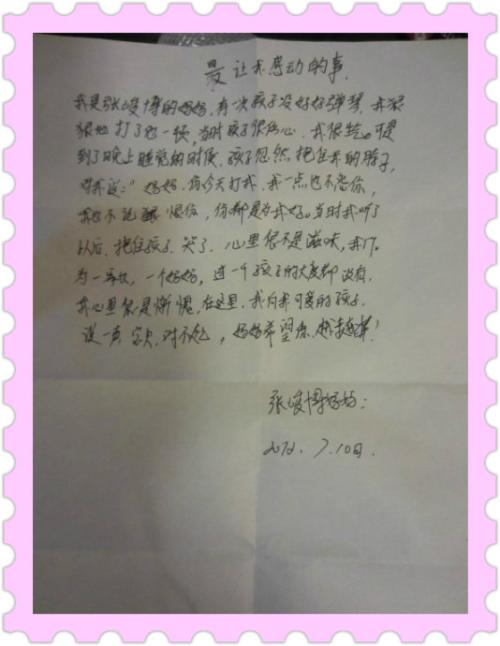 最让我感动的事
我是张峻博的妈妈,有一次孩子没好好弹琴,我狠
狠地打了他一顿,当时孩子很伤心,我很生气。可是
到了晚上睡觉的时候,孩子忽然抱住我的脖子,
对我说:"妈妈,你今天打我,我一点也不怨你,
我不记恨你,你都是为我好。当时我听了
以后,抱住孩子哭了,心里很不是滋味,我
为一家长,一个妈妈,连一个孩子的大度都没有,
我心里很是惭愧,在这里,我向我可爱的孩子
说一声 对不起,妈妈希望你越来越棒!
张峻博妈妈:
2012.7.10日.